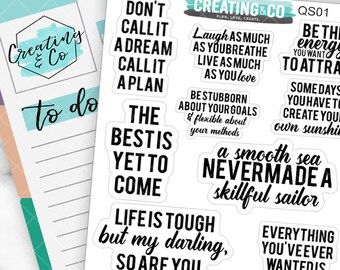 Creating
& Co
to do
DON'T
CALL IT
A DREAM
CALL IT
A PLAN
CREATING&CO
PLAN. LOVE. CREATE.
QS01
Laugh AS MUCH
AS YOU BREATHE
LIVE AS MUCH
AS YOU love
BE THE
energy
YOU WANT TO
TO ATTRA
BE STUBBORN
ABOUT YOUR GOALS
& flexible about
your methods
SOME DAYS
YOU HAVE TO
CREATE YOUR
own sunshin
THE
BEST IS
YET TO
COME
a smooth sea
NEVER MADE A
skillful sailor
LIFE IS TOUGH
but my darling,
SO ARE YOU
EVERYTHING
YOU'VE EVER
WANTED IS